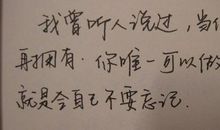 我曾听人说过，当你
再拥有·你唯一可以做
就是令自己不要忘记.